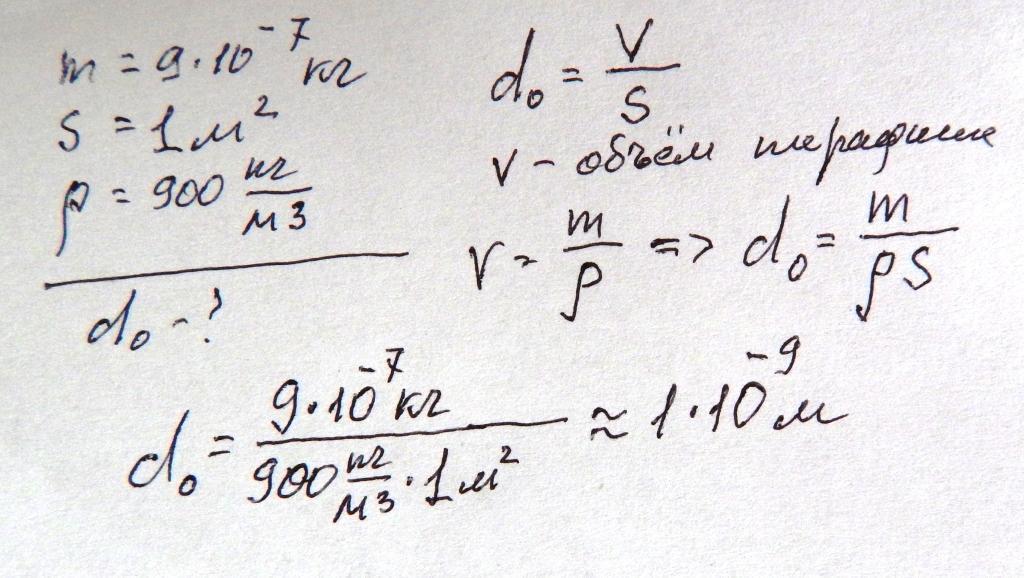 m = 9·10⁻⁷ кг
S = 1 м²
ρ = 900 кг/м3
d₀ - ?
d₀ = V/S
V - объём парафина
V = m/ρ => d₀ = m/ρS
d₀ = 9·10⁻⁷ кг / 900 кг/м3 · 1 м² ≈ 1·10⁻⁹ м